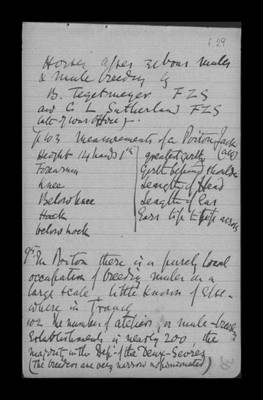 Horses asses zebras mules
& mule breeding by
B. Tegetmeyer FZS
and C L Sutherland FZS
late of war office
p 103 measurements of a Poitou Jack (ass)
Height 14 hands 1 in
greatest girth
Forearm
Girth behind shoulder
Knee
Length of Head
Below knee
Length of Ear
Hock
Ears tip to tip across
below hock
95 In Poitou there is a purely local
occupation of breeding mules on a
large scale, little known of else-
where in France
102 The number of ateliers, or mule-breeding
establishments is nearly 200, the
majority in the Dept of the Deux-Sèvres
(The breeders are very narrow & opinionated)